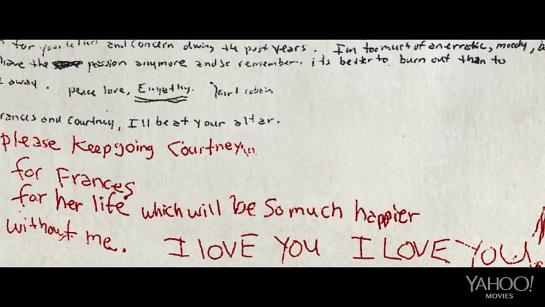 for your letters and concern during the past years. I'm too much of an erratic, moody,
have the passion anymore and so remember. its better to burn out than to
away. peace love, Empathy.
rances and courtney, I'll be at your altar.
please Keep going Courtney,
for Frances
for her life which will be so much happier
without me. I LOVE YOU I LOVE YOU!
YAHOO!
MOVIES